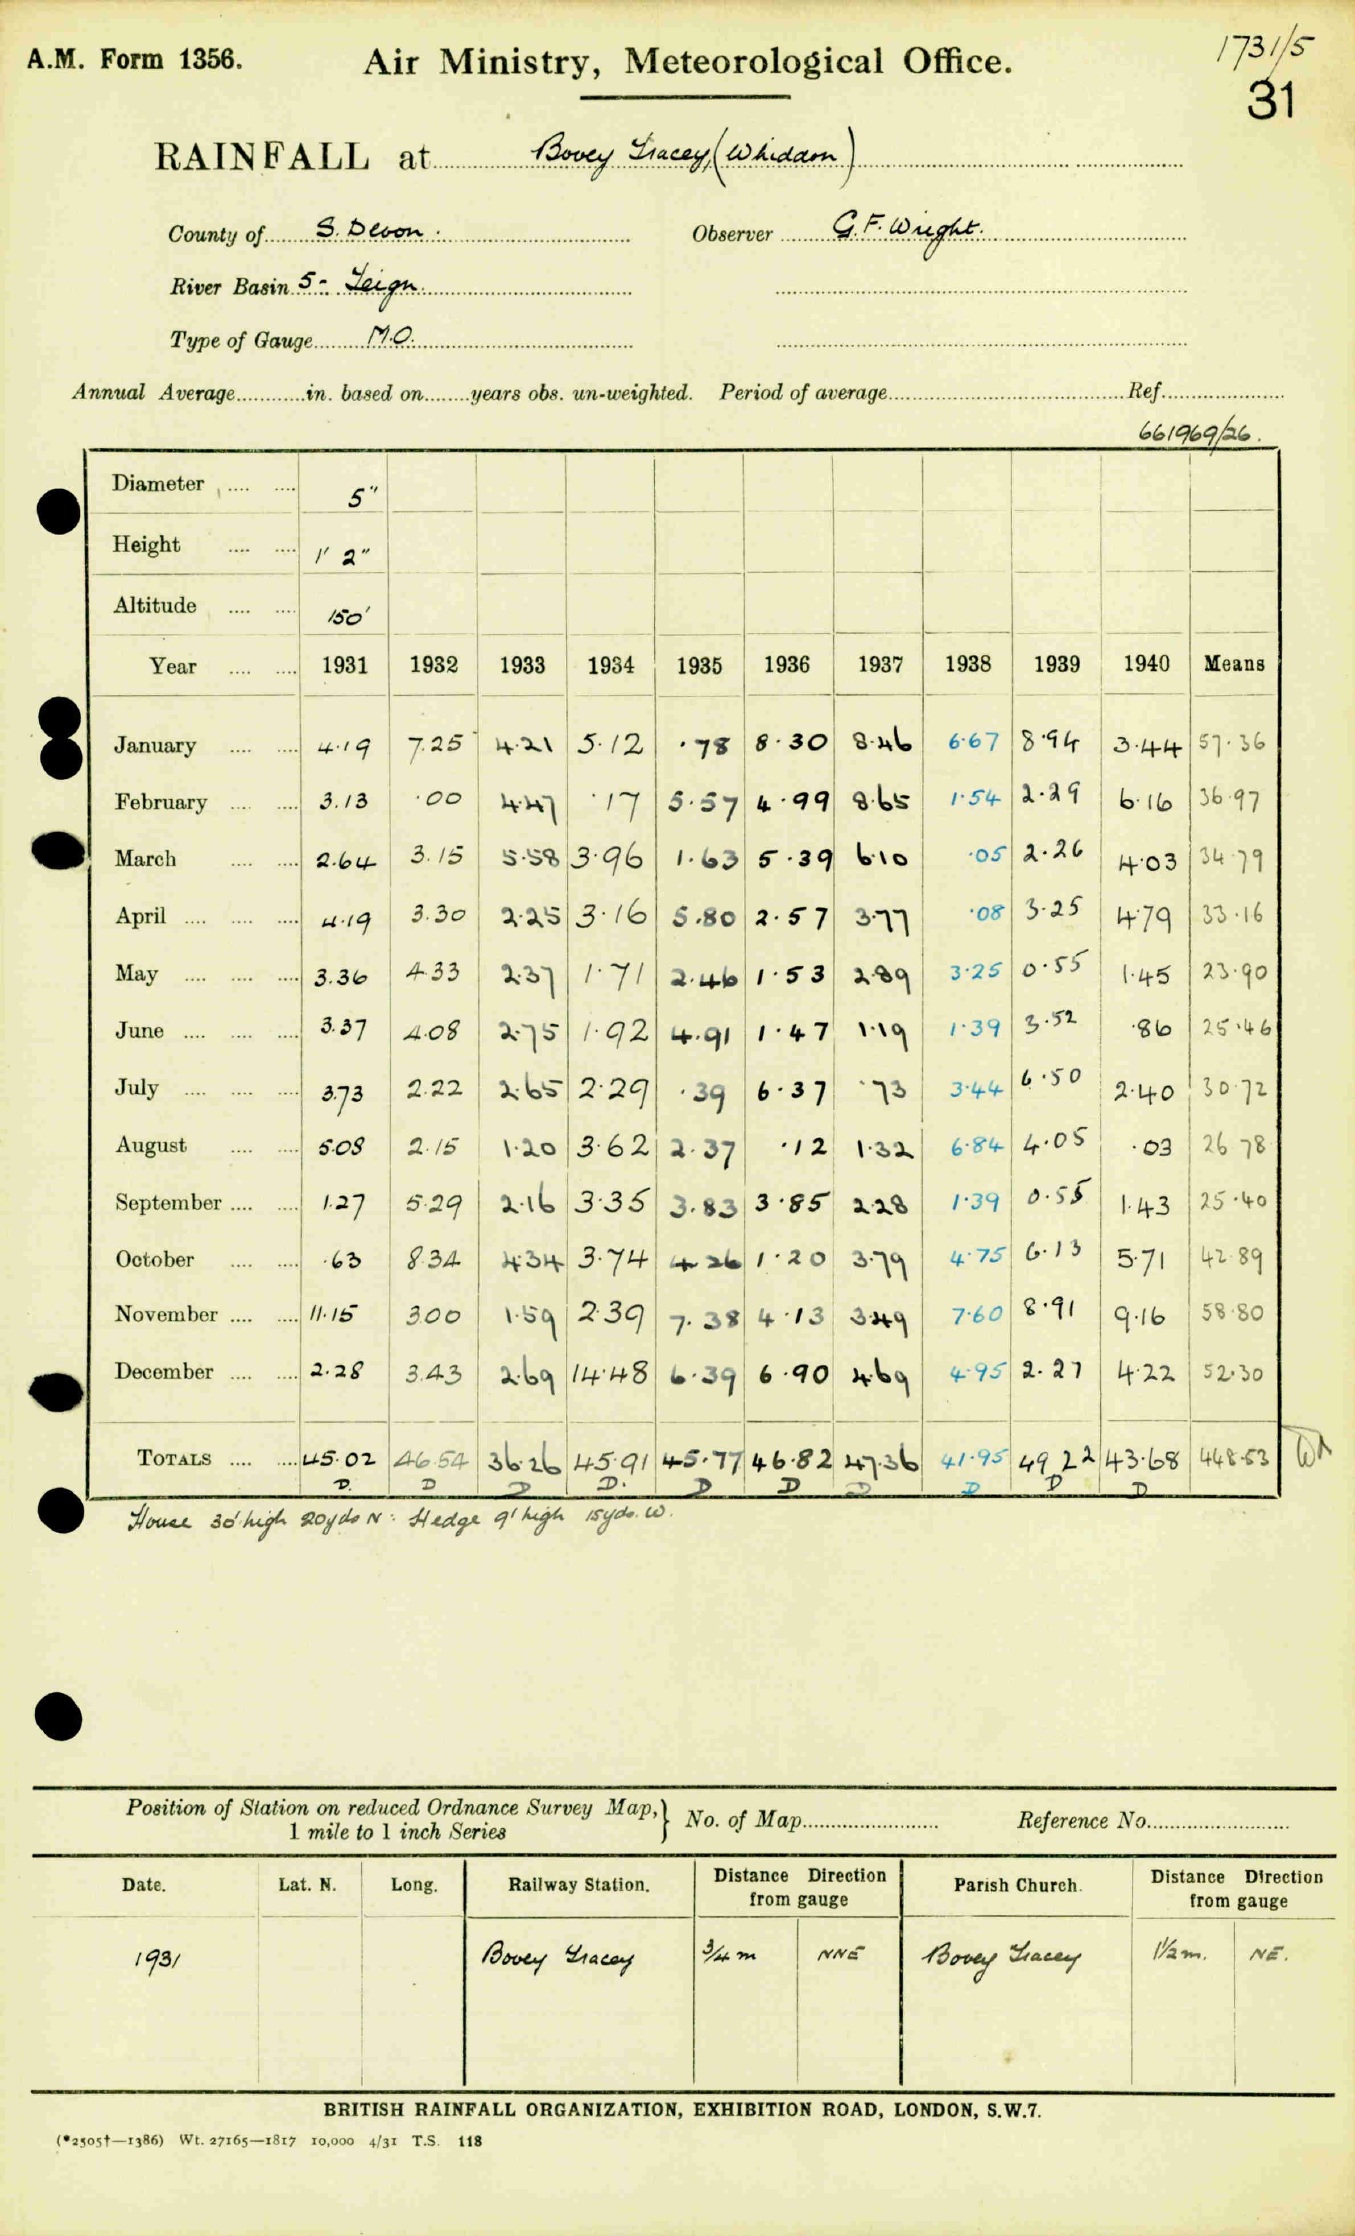 1731/5
A.M. Form 1356. Air Ministry, Meteorological Office.
31
RAINFALL at Bovey Tracey, (Whiddon)
County of S. Devon. Observer G.F. Wright.
River Basin 5- Teign.
Type of Gauge M.O.
Annual Average in. based on years obs. un-weighted. Period of average Ref.
661969/26.
Diameter 5"
Height 1' 2"
Altitude 150'
Year 1931 1932 1933 1934 1935 1936 1937 1938 1939 1940 Means
January 4.19 7.25 4.21 5.12 .78 8.30 8.46 6.67 8.94 3.44 57.36
February 3.13 .00 4.47 .17 5.57 4.99 8.65 1.54 2.29 6.16 36.97
March 2.64 3.15 5.58 3.96 1.63 5.39 6.10 .05 2.26 4.03 34.79
April 4.19 3.30 2.25 3.16 5.80 2.57 3.77 .08 3.25 4.79 33.16
May 3.36 4.33 2.37 1.71 2.46 1.53 2.89 3.25 0.55 1.45 23.90
June 3.37 4.08 2.75 1.92 4.91 1.47 1.19 1.39 3.52 .86 25.46
July 3.73 2.22 2.65 2.29 .39 6.37 .73 3.44 6.50 2.40 30.72
August 5.08 2.15 1.20 3.62 2.37 .12 1.32 6.84 4.05 .03 26.78
September 1.27 5.29 2.16 3.35 3.83 3.85 2.28 1.39 0.55 1.43 25.40
October .63 8.34 4.34 3.74 4.26 1.20 3.79 4.75 6.13 5.71 42.89
November 11.15 3.00 1.59 2.39 7.38 4.13 3.49 7.60 8.91 9.16 58.80
December 2.28 3.43 2.69 14.48 6.39 6.90 4.69 4.95 2.27 4.22 52.30
TOTALS 45.02 46.54 36.26 45.91 45.77 46.82 47.36 41.95 49.22 43.68 448.53
D. D D D. D D D D D D
House 30' high 20yds N: Hedge 9' high 15yds. W.
Position of Station on reduced Ordnance Survey Map, } No. of Map Reference No.
1 mile to 1 inch Series
Date. Lat. N. Long. Railway Station. Distance Direction from gauge Parish Church. Distance Direction from gauge
1931 Bovey Tracey 3/4 m NNE Bovey Tracey 1 1/2 m. NE.
BRITISH RAINFALL ORGANIZATION, EXHIBITION ROAD, LONDON, S.W.7.
(*2505†—1386) Wt. 27165—1817 10,000 4/31 T.S. 118